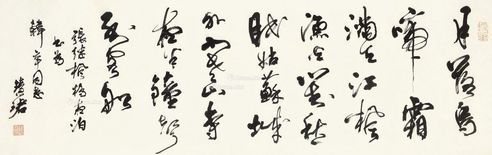 月落烏
啼霜
滿天江楓
漁火對愁
眠姑蘇城
外寒山寺
夜半鐘聲
到客船
張继楓橋夜泊
同志